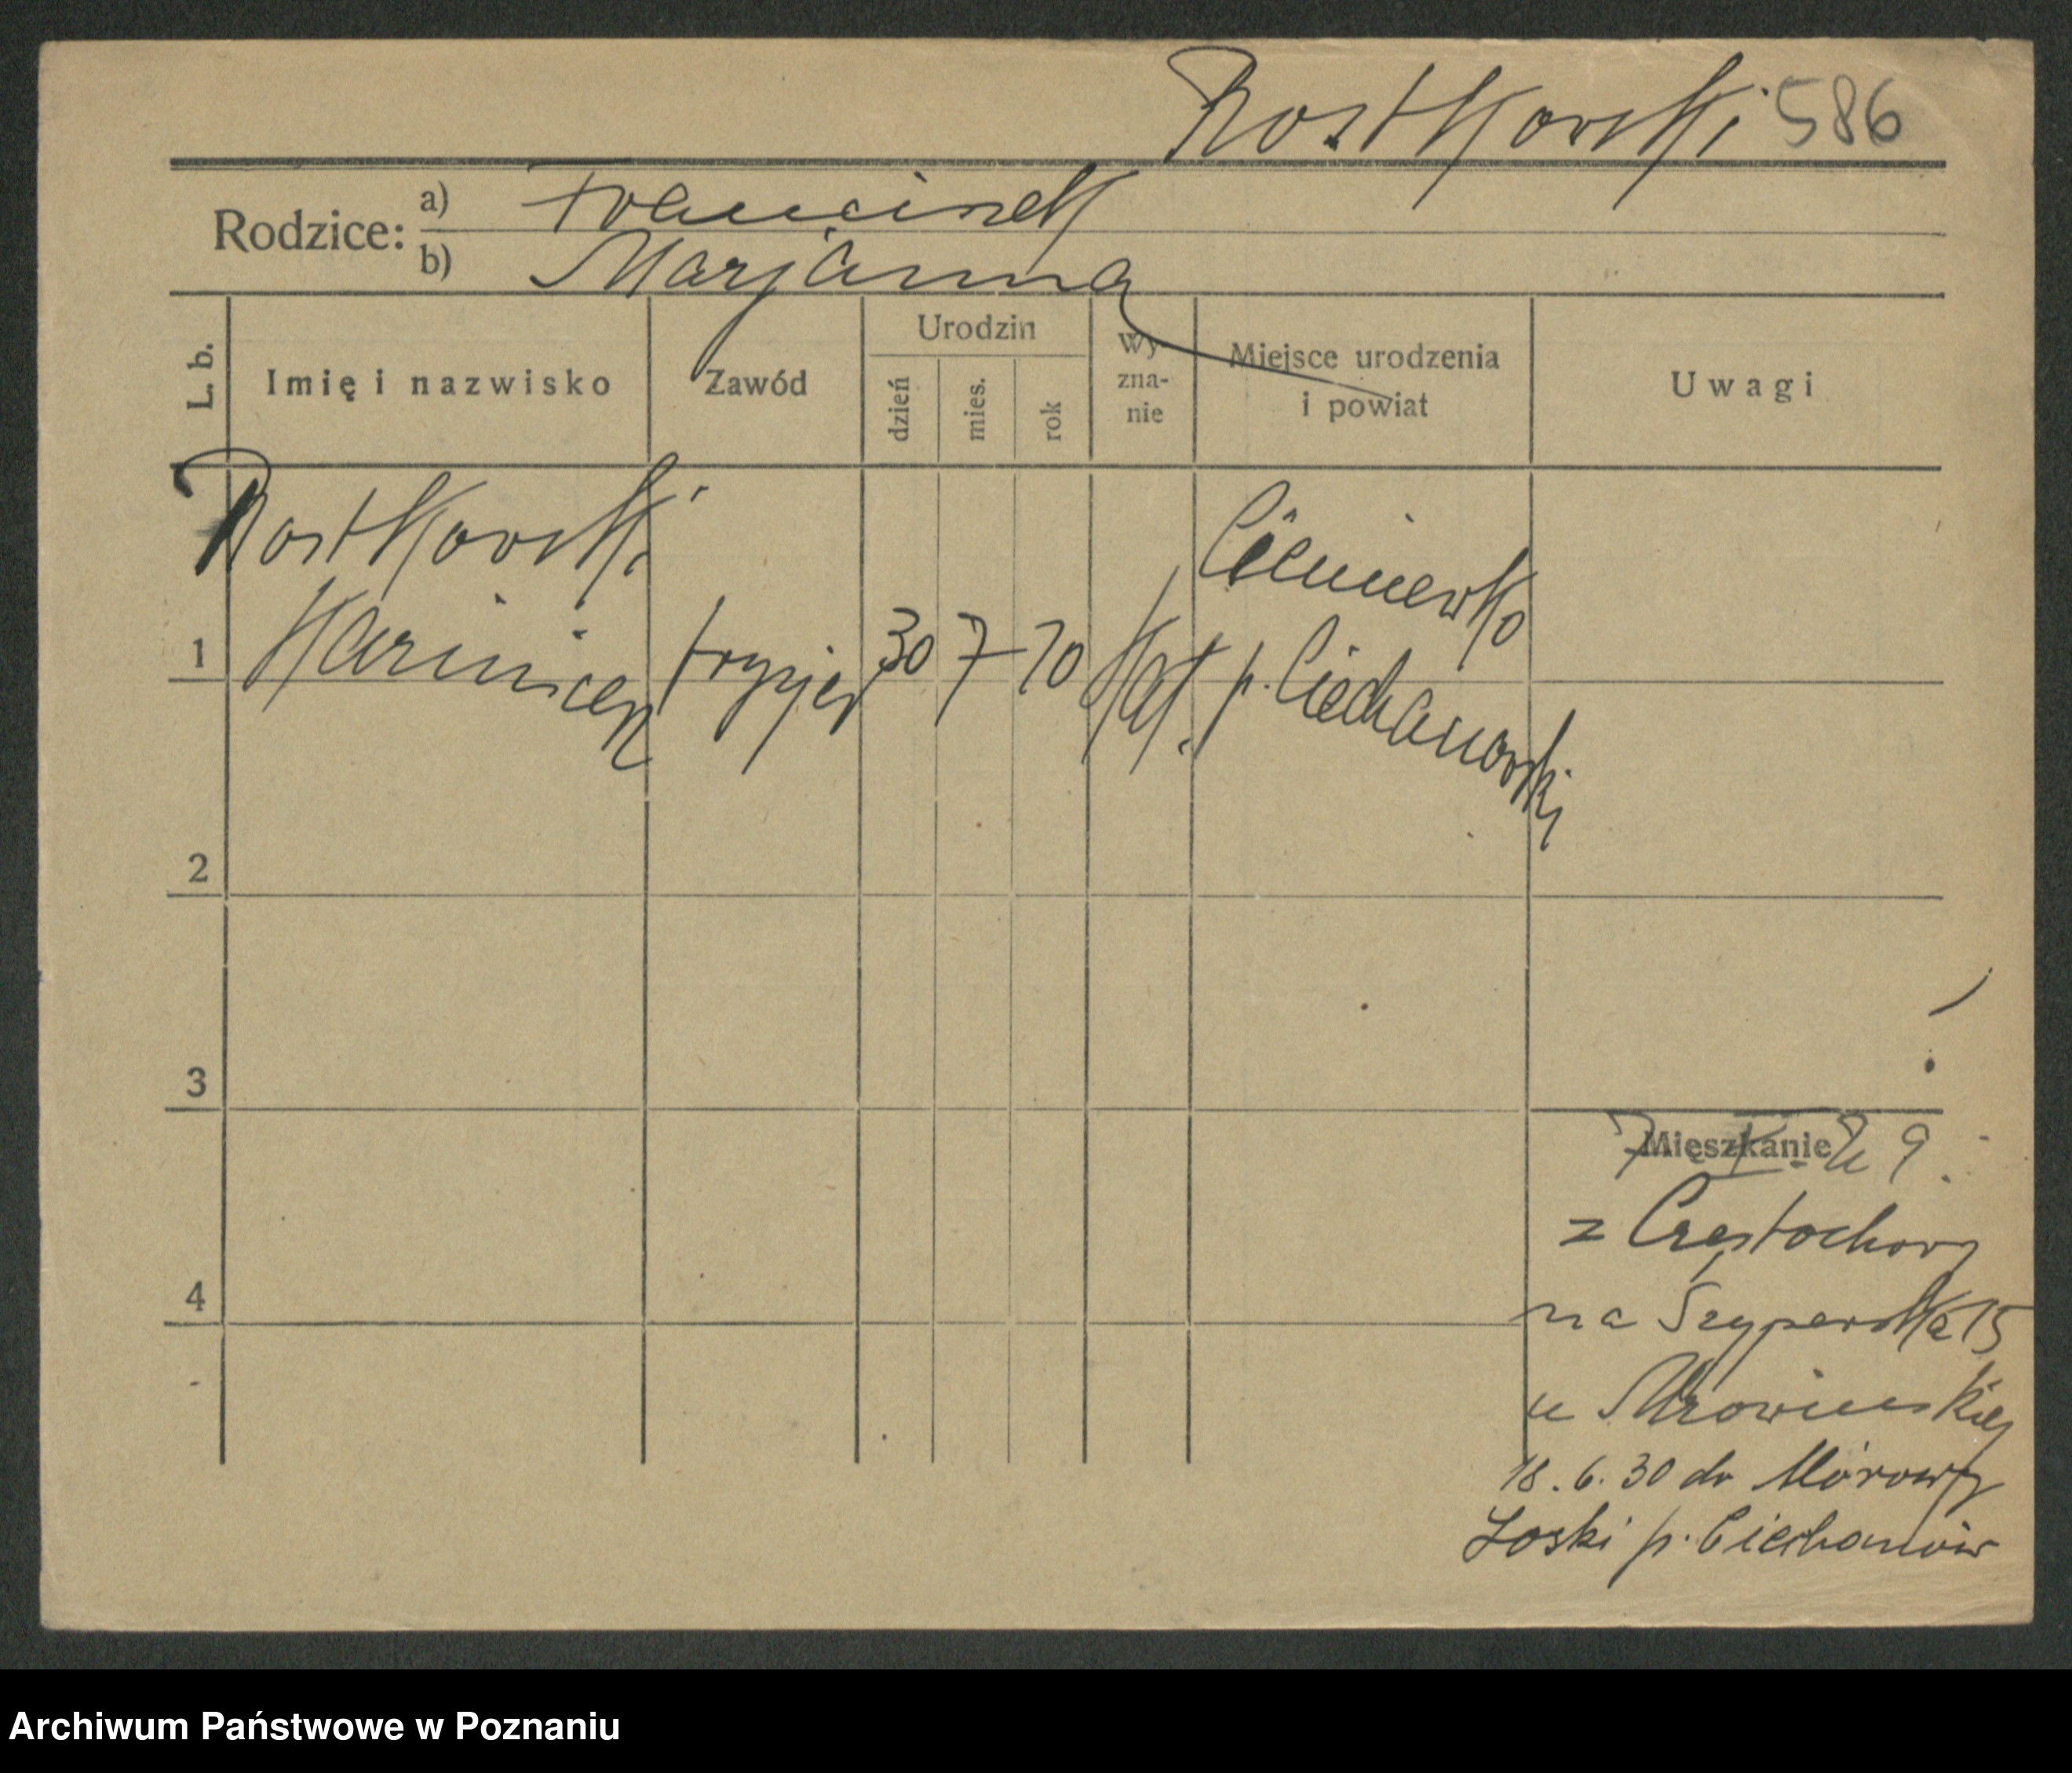 Rostkowski 586
Rodzice: a) Franciszek
b) Marjanna
L. b. Imię i nazwisko Zawód Urodzin dzień mies. rok Wy-zna-nie Miejsce urodzenia i powiat Uwagi
Rostkowski
1 Kazimierz fryzjer 30 7 10 Kat. p. Ciechanowski
2
3
Mieszkanie
7 29.
z Częstochowy
4
na Szyperska 15
u Mrowińskiej
18.6.30 do
p. Ciechanów
Archiwum Państwowe w Poznaniu